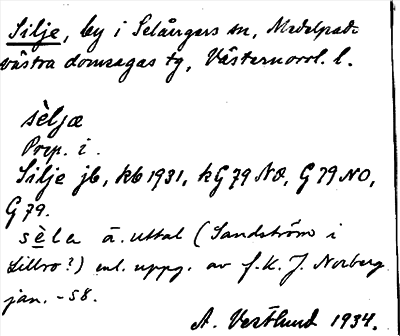 Silje, by i Selångers sn, Medelpads
västra domsagas tg, Västernorrl. l.
sèljæ
Prep. i.
Silje jb, kb 1931, kG 79 NO, G 79 NO,
G 79.
sèla ä. uttal (Sandström i
Sillro?) enl. uppg. av f.k. J. Norberg
jan. -58.
A. Vestlund 1934.